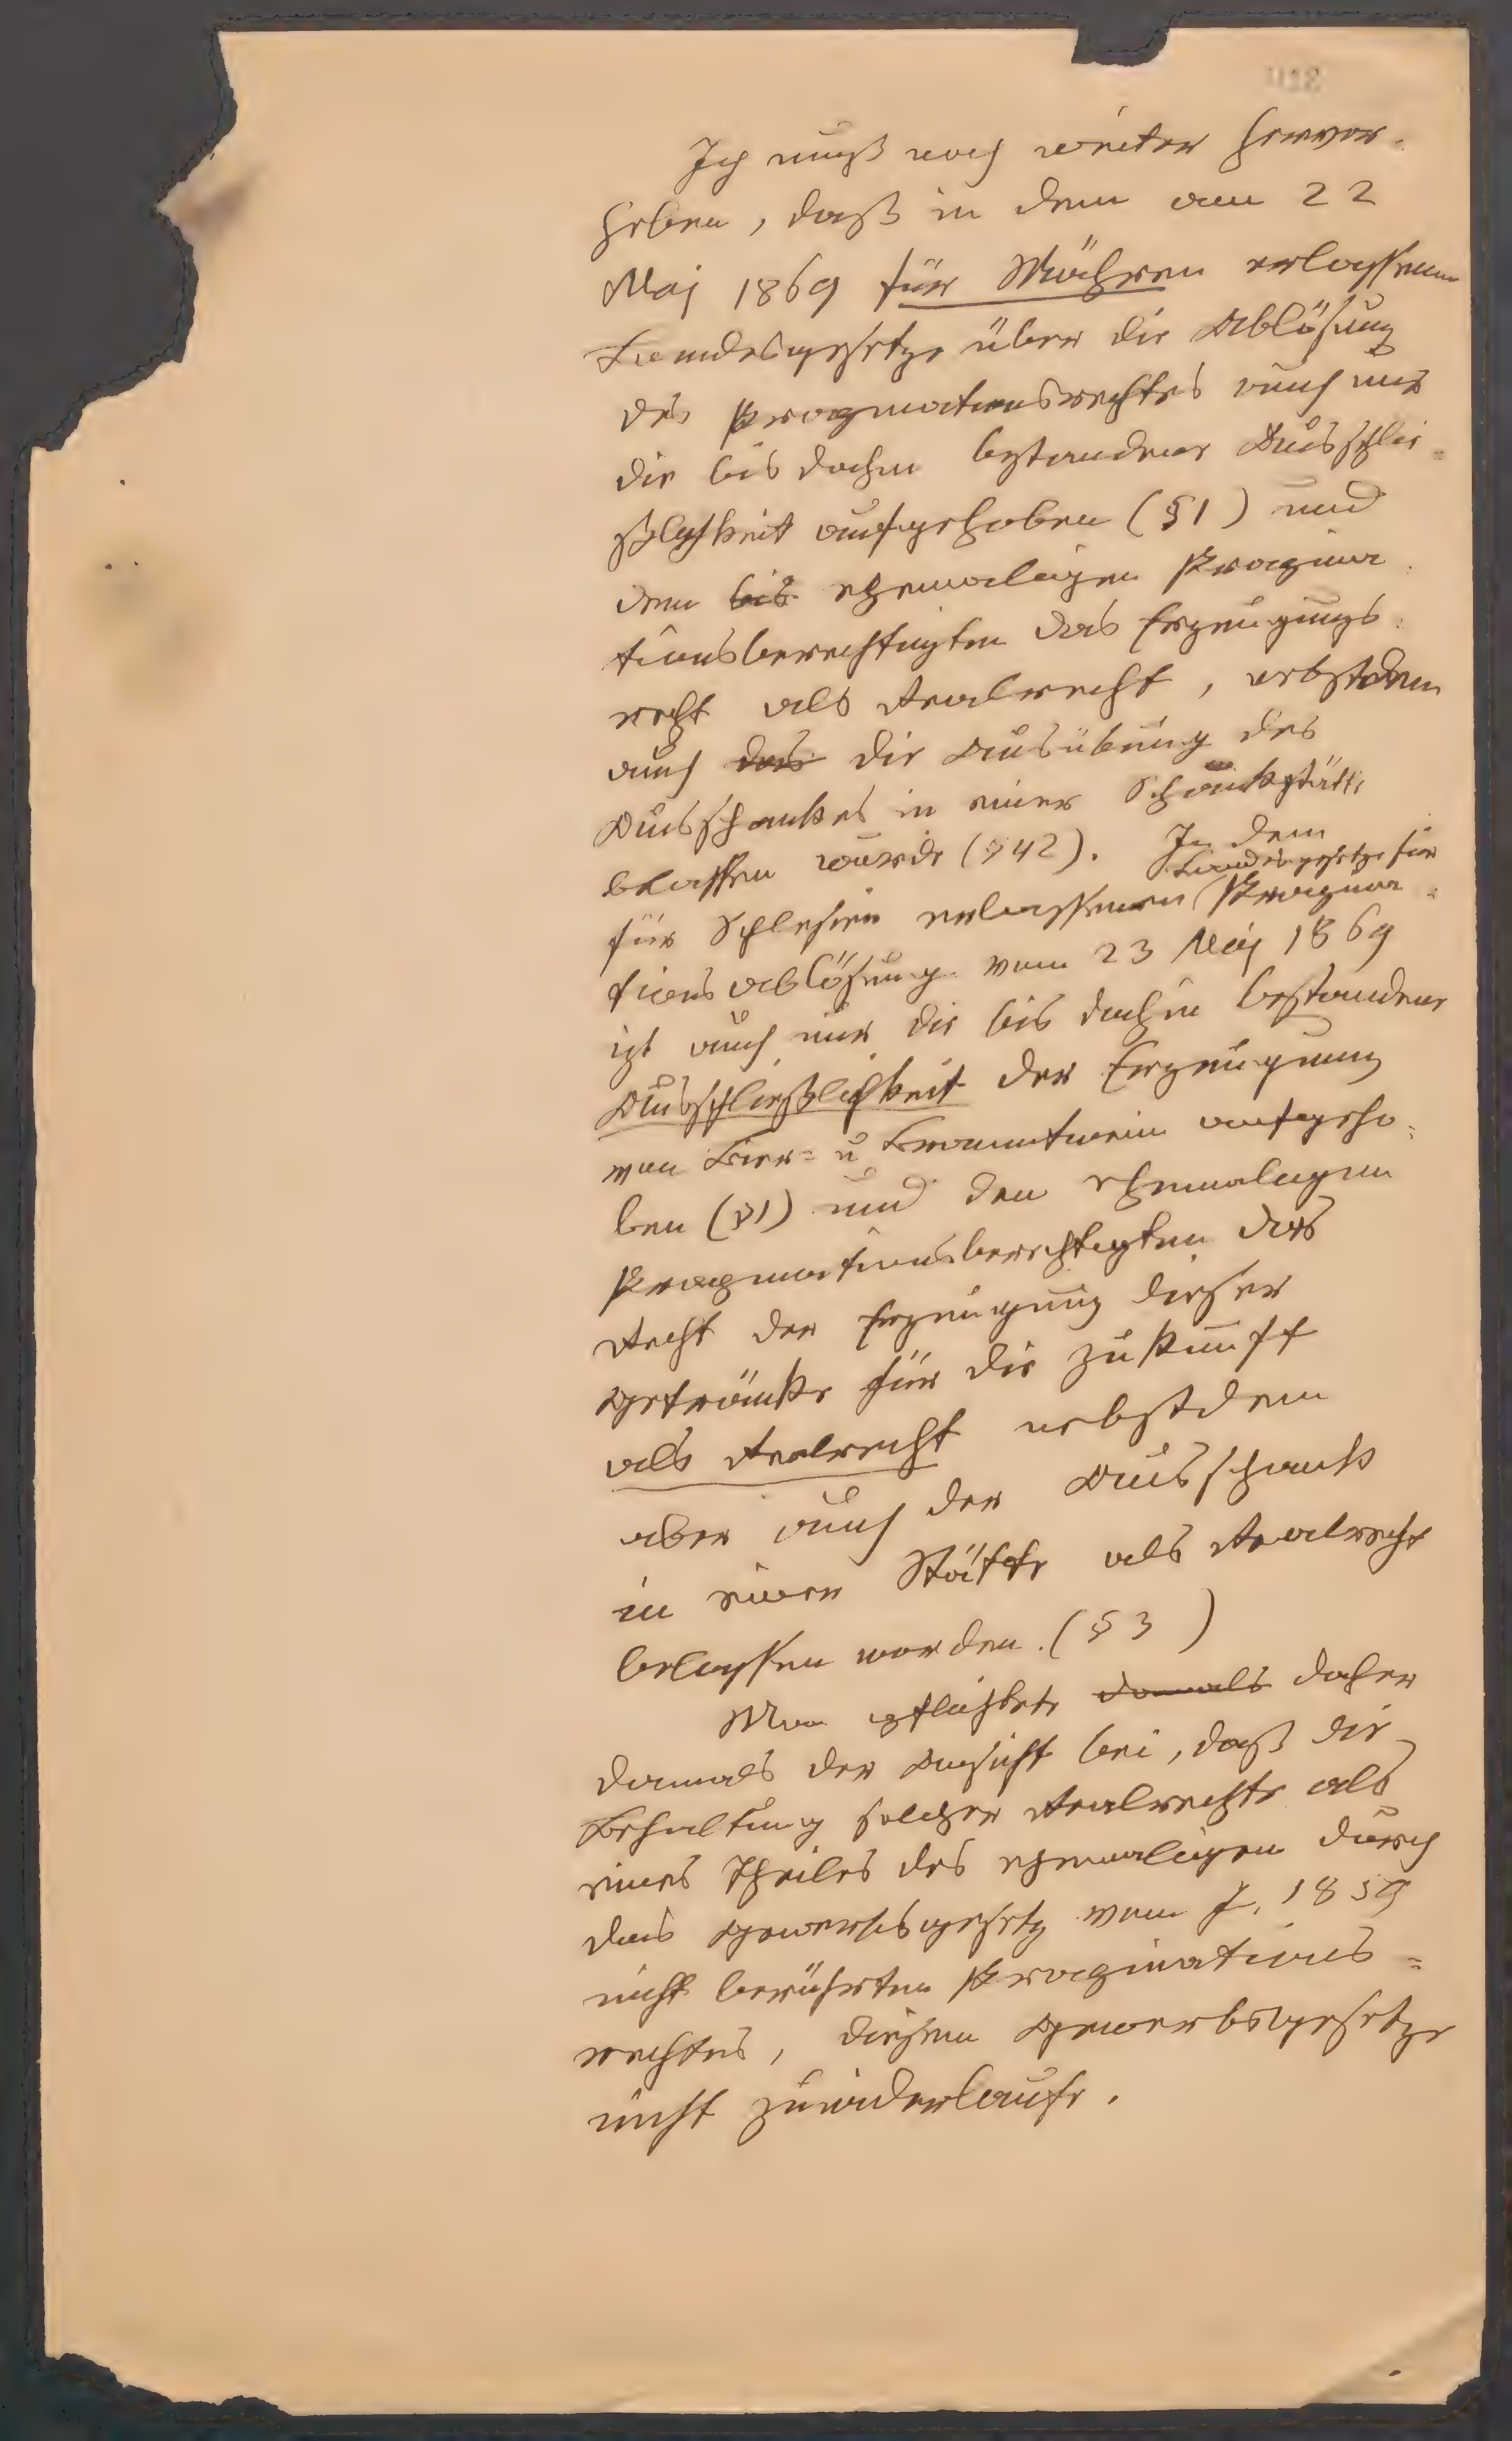 Ich muß noch weiter hervor-
heben, daß in dem am 22
Maj 1869 für Mähren erlassenen
Landesgesetze über die Ablösung
des Propinationsrechtes auch nur
die bis dahin bestandene Ausschlie=
ßlichkeit aufgehoben (§1) und
den bis ehemaligen Propina=
tionsberechtigten das Erzeugungs=
recht als Realrecht, nebstdem
auch das die Ausübung des
Ausschankes in einer Schankstätte
belassen wurde (§ 42). In dem
Landesgesetze für
für Schlesien erlassenen Propina=
tionsablösung vom 23 Maj 1869
ist auch nur die bis dahin bestandene
Ausschließlichkeit der Erzeugung
von Bier= u Branntwein aufgeho=
ben (§1) und den ehemaligen
Propinationsberechtigten das
Recht der Erzeugung dieser
Getränke für die Zukunft
als Realrecht nebstdem
aber auch der Ausschank
in einer Stätte als Realrecht
belassen worden. (§ 3 )
Man pflichtete damals daher
damals der Ansicht bei, daß die
Behaltung solcher Realrechte als
eines Theiles des ehemaligen durch
das Gewerbsgesetz vom J. 1859
nicht berührten Propinations=
rechtes, diesem Gewerbsgesetze
nicht zuwiderlaufe.